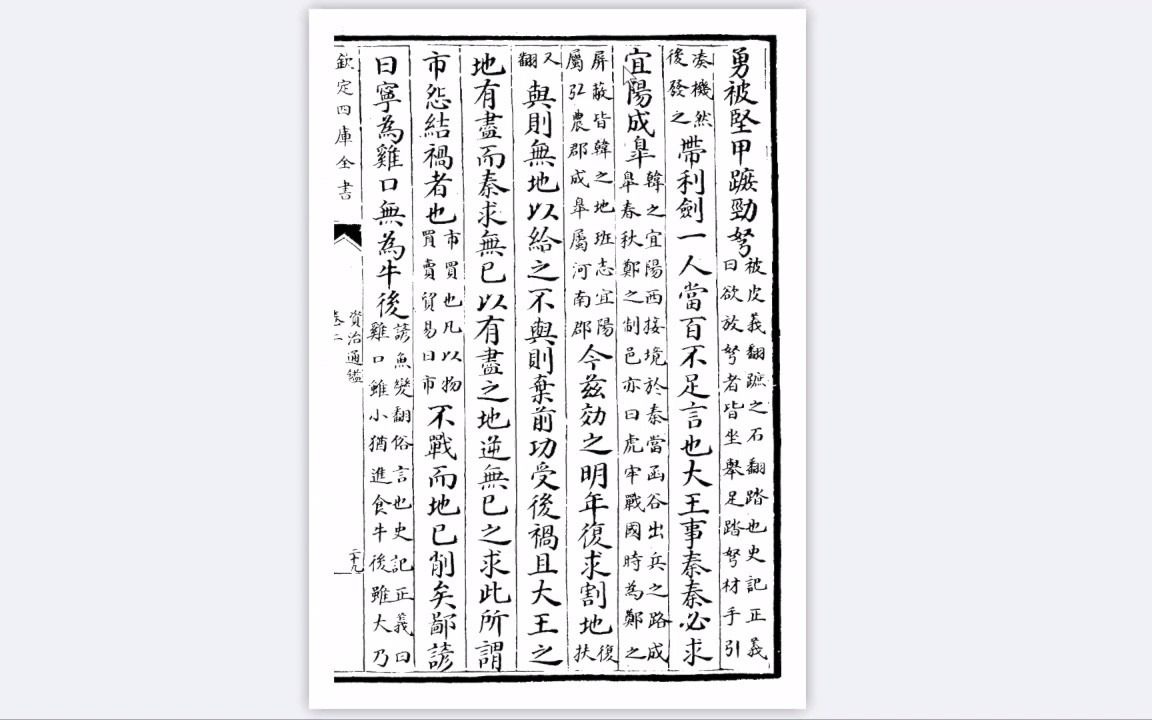 勇被堅甲蹠勁弩被皮義翻蹠之石翻踏也史記正義曰欲放弩者皆坐舉足踏弩材手引
湊機然後發之帶利劍一人當百不足言也大王事秦秦必求
宜陽成臯韓之宜陽西接境於秦當函谷出兵之路成臯春秋鄭之制邑亦曰虎牢戰國時為鄭之
屏蔽皆韓之地班志宜陽屬弘農郡成臯屬河南郡今茲効之明年復求割地復扶
又翻與則無地以給之不與則棄前功受後禍且大王之
地有盡而秦求無已以有盡之地逆無已之求此所謂
市怨結禍者也市買也凡以物買賣貿易曰市不戰而地已削矣鄙諺
曰寧為雞口無為牛後諺魚變翻俗言也史記正義曰雞口雖小猶進食牛後雖大乃
欽定四庫全書
資治通鑑
卷二
二十九